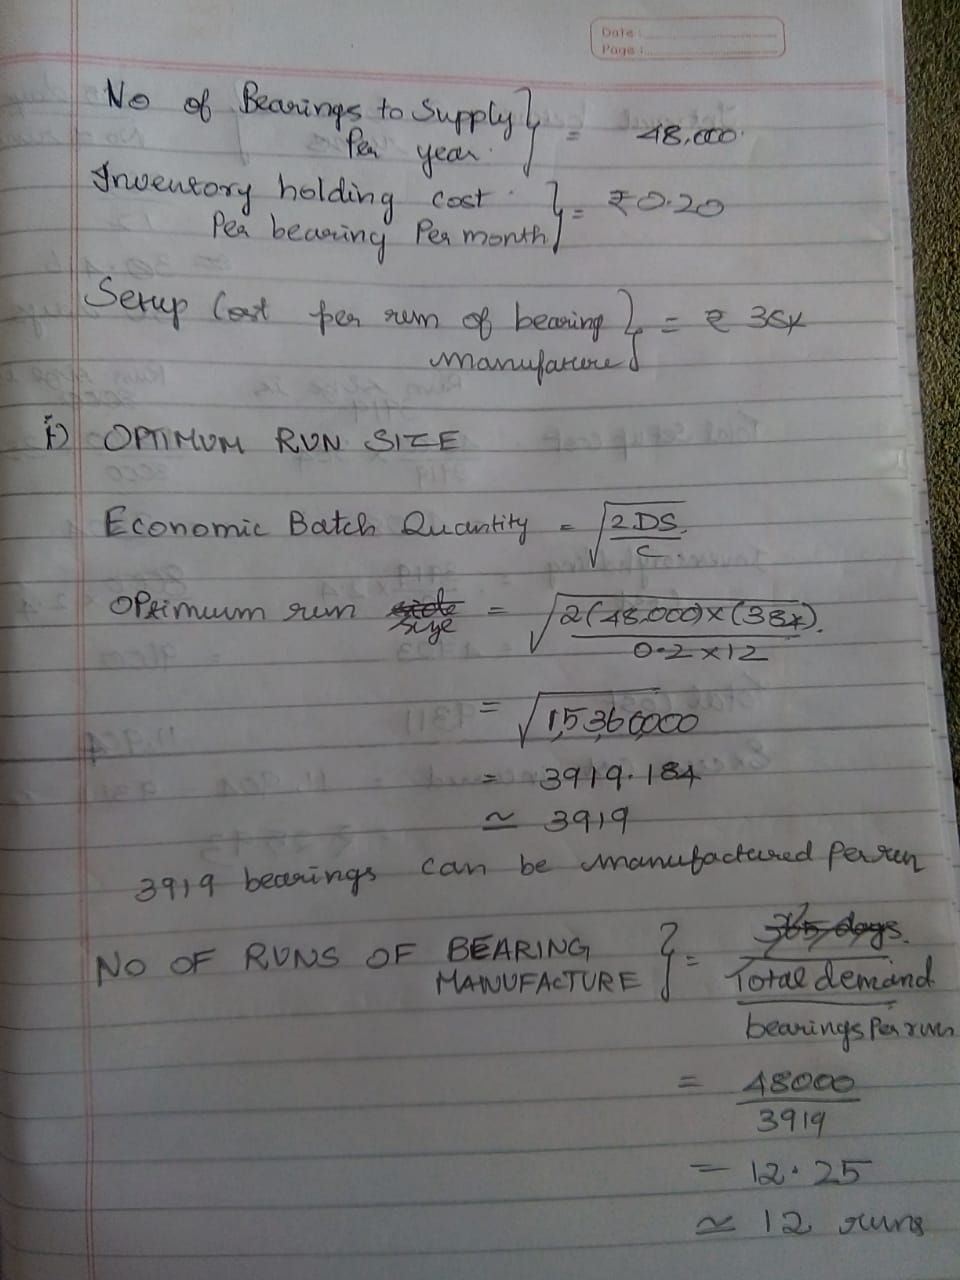 Date :
Page :
No of Bearings to Supply
Per year } = 48,000
Inventory holding cost
Per bearing Per month } = ₹0.20
Setup Cost per run of bearing
manufature } = ₹ 384
i) OPTIMUM RUN SIZE
Economic Batch Quantity = √(2DS / C)
OPtimum run size = √(2(48.000)×(384) / 0.2×12)
= √15360000
= 3919.184
≃ 3919
3919 bearings can be manufactured Per run
365 days.
NO OF RUNS OF BEARING
MANUFACTURE } = Total demand / bearings Per run
= 48000 / 3919
= 12.25
≃ 12 runs